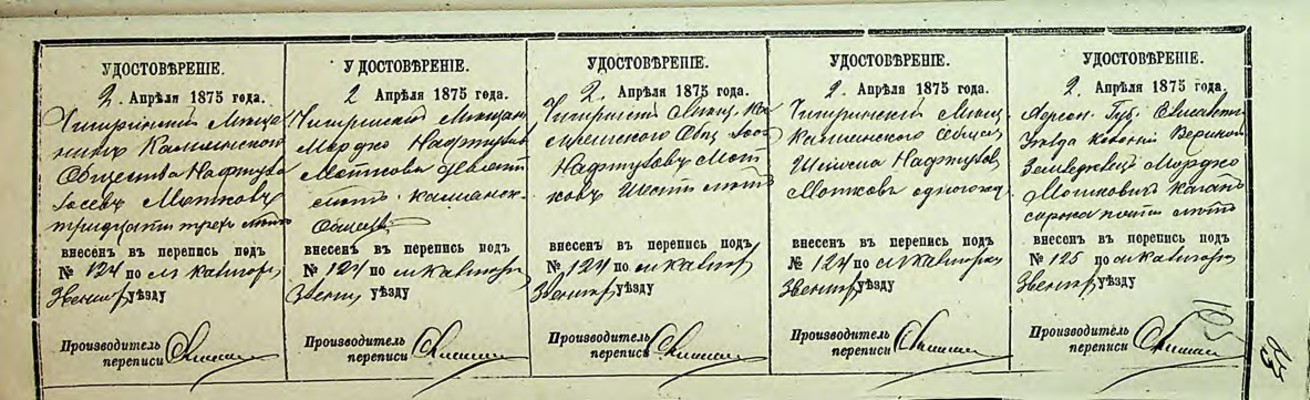 УДОСТОВѢРЕНІЕ.
2. Апрѣля 1875 года.
Чигринскій Мѣща
нинъ Каменского
Общества Нафтула
Іосевъ Мотковъ
тридцати трехъ лѣтъ
внесенъ въ перепись подъ
№ 124 по м. Кавигор,
Звенигор уѣзду
Производитель
переписи
УДОСТОВѢРЕНІЕ.
2 Апрѣля 1875 года.
Чигринскій Мѣщан
Мордко Нафтулов
Мотковъ девяти
лѣтъ Каменск.
Общест
внесенъ въ перепись подъ
№ 124 по м Кавигор
Звениг уѣзду
Производитель
переписи
УДОСТОВѢРЕНІЕ.
2. Апрѣля 1875 года.
Чигринскій Мѣщ. Ка
менского Общ
Нафтуловъ Мот
ковъ шести лѣтъ
внесенъ въ перепись подъ
№ 124 по м Кавигор
Звенигор уѣзду
Производитель
переписи
УДОСТОВѢРЕНІЕ.
2. Апрѣля 1875 года.
Чигринскій Мѣщ
Каменского Общес
Нафтулов
Мотковъ одного год
внесенъ въ перепись подъ
№ 124 по м Кавигор
Звенигор уѣзду
Производитель
переписи
УДОСТОВѢРЕНІЕ.
2 Апрѣля 1875 года.
Херсон. Губ. Елисавет
Уѣзда
Земледѣлецъ Мордко
Мошковичъ Каганъ
сорока пяти лѣтъ
внесенъ въ перепись подъ
№ 125 по м Кавигор
Звенигор уѣзду
Производитель
переписи